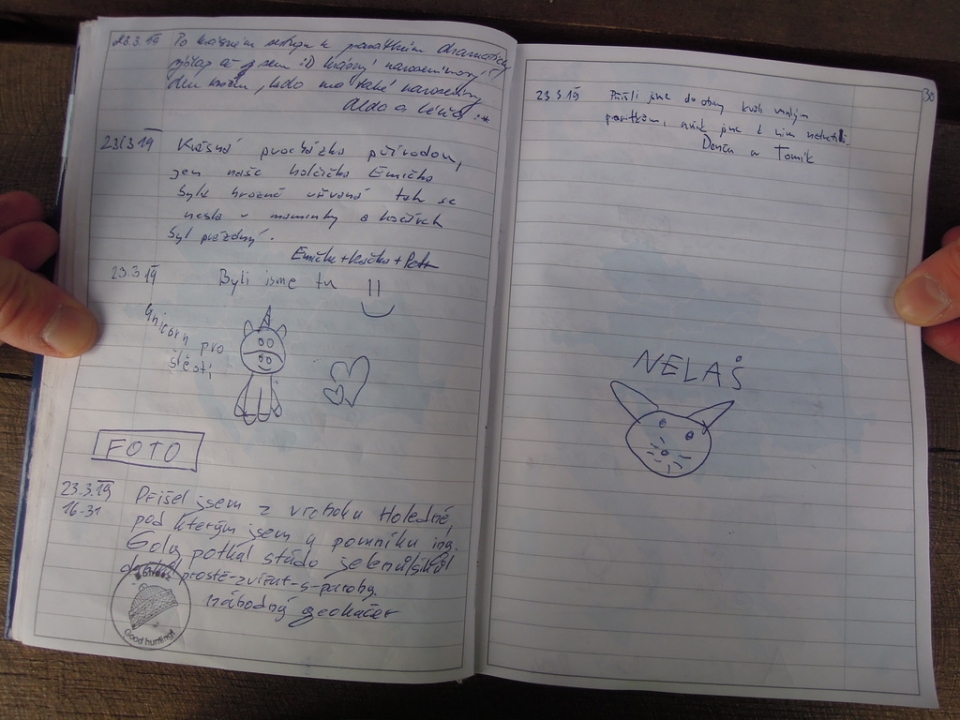 23.3.19 Po krásném sestupu k památkám dramatický
výšlap až sem :D krásný narozeninový
den všem, kdo má také narozeniny
Aldo a
23.3.19 Krásná procházka přírodou,
jen naše holčička Emička
byla hrozně uřvaná tak se
nesla u maminky a kočárek
byl prázdný.
Emička+Kačka+Petr
23.3.19 Byli jsme tu
Unicorn pro
štěstí
FOTO
23.3.19 Přišel jsem z vrcholu Holedné,
16:31 pod kterým jsem u pomníku ing.
Goly potkal stádo jelenů/siků/
prostě-zvířat-s-parohy.
náhodný geokačer
Good hunting!
30
23.3.19 Přišli jsme do obory kvůli malým
prasátkům, však jsme k nim netrefili.
Denča a Tomík
NELAŠ